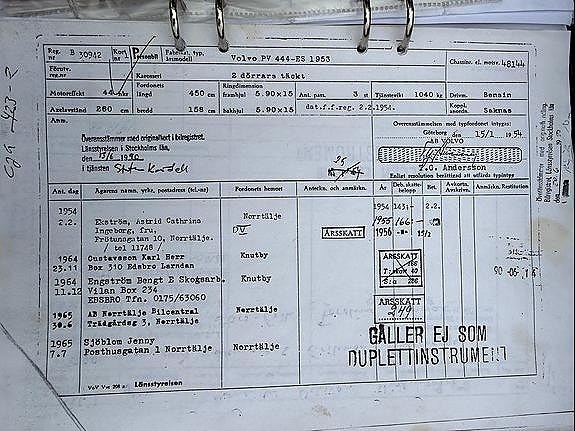 Reg. nr B 30942 Kort nr Personbil Fabrikat, typ, årsmodell Volvo PV 444-ES 1953 Chassinr. el. motornr. 48144
Förutv. reg.nr Karosseri 2 dörrars täckt
Motoreffekt 44 hkr Fordonets längd 450 cm Ringdimension framhjul 5.90x15 Ant. pass. 3 st Tjänstevikt 1040 kg Drivm. Bensin
Axelavstånd 260 cm bredd 158 cm bakhjul 5.90x15 dat.f.f.reg. 2.2.1954. Koppl. anordn. Saknas
Anm. Överensstämmelse med typfordonet intygas:
Göteborg den 15/1 1954
AB VOLVO
T.G. Andersson
Enligt resolution berättigad att utfärda typintyg
Överensstämmer med originalkort i bilregistret.
Länsstyrelsen i Stockholms län,
den 13/6 1990
I tjänsten
Ant. dag Ägarens namn, yrke, postadress (tel.-nr) Fordonets hemort Anteckn. och anmärkn. År Deb. skattebelopp Bet. Avkortn. Avskrivn. Anmärkn. Restitution
1954
2.2. Ekström, Astrid Cathrina
Ingeborg, fru,
Frötunagatan 10, Norrtälje.
/ tel 11748 /
Norrtälje
DV
ÅRSSKATT
1954 143:- 2.2.
1955 166:-
1956 -"- 15/2
1964 Gustavsson Karl Herr
23.11 Box 310 Edsbro Larndan
Knutby
ÅRSSKATT
1964 Engström Bengt E Skogsarb.
11.12 Vilan Box 234
EBSBRO Tfn. 0175/63060
Knutby
S:a 286
90-06-14
1965 AB Norrtälje Bilcentral
30.6 Trädgårdsg 3, Norrtälje
Norrtälje
ÅRSSKATT
249
1965 Sjöblom Jenny
7.7 Posthusgatan 1 Norrtälje
Norrtälje
GÄLLER EJ SOM
DUPLETTINSTRUMENT
Länsstyrelsen